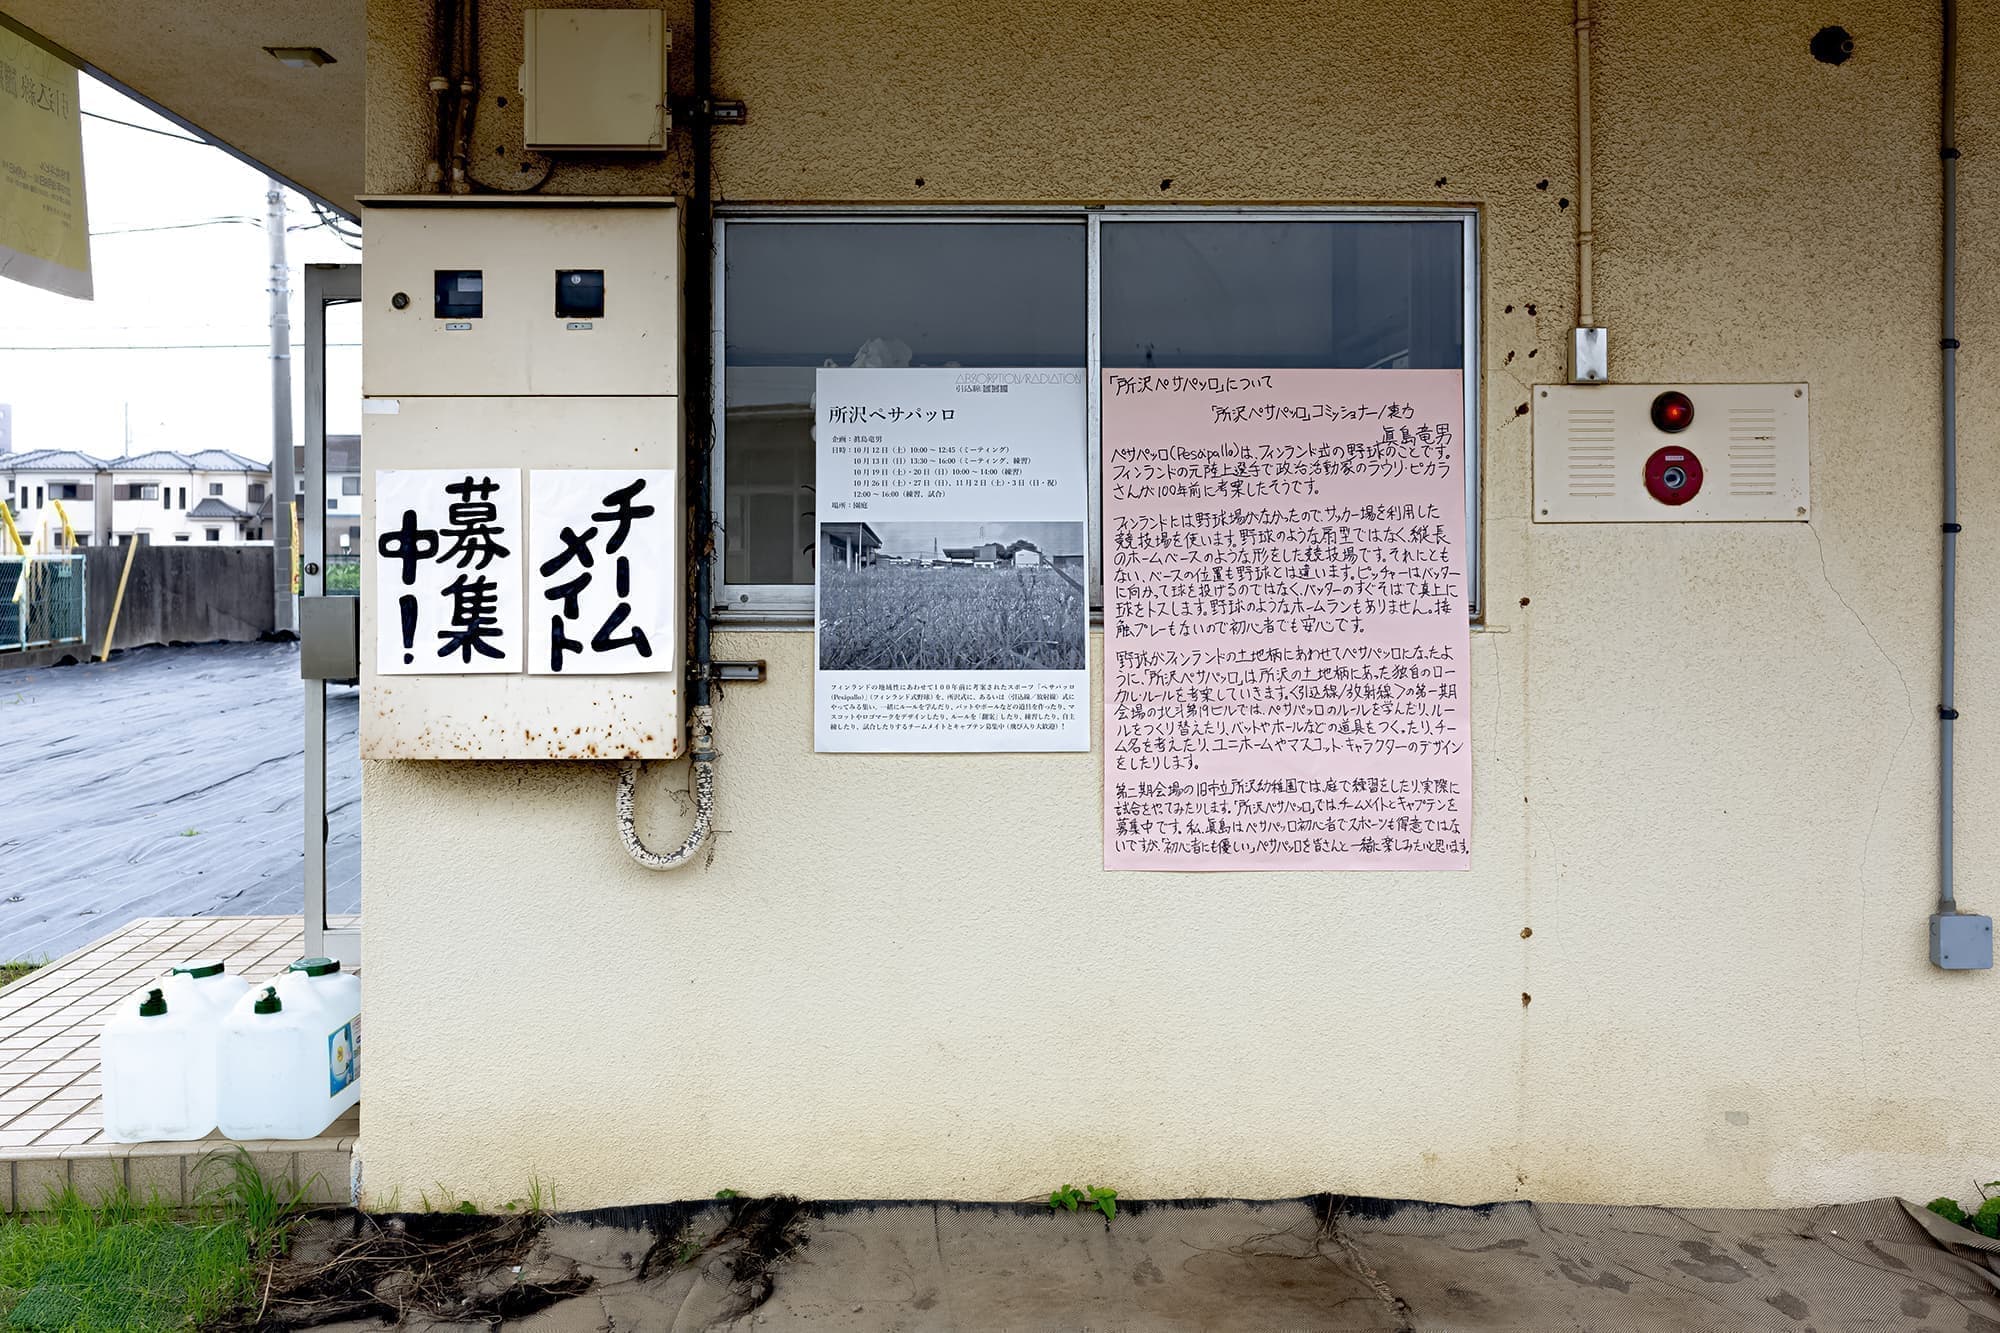 チーム
メイト
募集
中！
ABSORPTION/RADIATION
引込線
所沢ペサパッロ
企画：眞島竜男
日時：10月12日（土）10:00～12:45（ミーティング）
10月13日（日）13:30～16:00（ミーティング、練習）
10月19日（土）・20日（日）10:00～14:00（練習）
10月26日（土）・27日（日）、11月2日（土）・3日（日・祝）
12:00～16:00（練習、試合）
場所：園庭
フィンランドの地域性にあわせて100年前に考案されたスポーツ「ペサパッロ
(Pesäpallo)」（フィンランド式野球）を、所沢式に、あるいは〈引込線／放射線〉式に
やってみる集い。一緒にルールを学んだり、バットやボールなどの道具を作ったり、マ
スコットやロゴマークをデザインしたり、ルールを「翻案」したり、練習したり、自主
練したり、試合したりするチームメイトとキャプテン募集中（飛び入り大歓迎）！
「所沢ペサパッロ」について
「所沢ペサパッロ」コミッショナー/
眞島竜男
ペサパッロ(Pesäpallo)は、フィンランド式の野球のことです。
フィンランドの元陸上選手で政治活動家のラウリ・ピカラ
さんが100年前に考案したそうです。
フィンランドには野球場がなかったので、サッカー場を利用した
競技場を使います。野球のような扇型ではなく、縦長
のホームベースのような形をした競技場です。それにとも
ない、ベースの位置も野球とは違います。ピッチャーはバッター
に向かって球を投げるのではなく、バッターのすぐそばで真上に
球をトスします。野球のようなホームランもありません。接
触プレーもないので初心者でも安心です。
野球がフィンランドの土地柄にあわせてペサパッロになったよ
うに、「所沢ペサパッロ」は所沢の土地柄にあった独自のロー
カル・ルールを考案していきます。〈引込線/放射線〉の第一期
会場の北斗第19ビルでは、ペサパッロのルールを学んだり、ルー
ルをつくり替えたり、バットやボールなどの道具をつくったり、チー
ム名を考えたり、ユニホームやマスコット・キャラクターのデザイン
をしたりします。
第二期会場の旧市立所沢幼稚園では、庭で練習をしたり、実際に
試合をやってみたりします。「所沢ペサパッロ」では、チームメイトとキャプテンを
募集中です。私、眞島はペサパッロ初心者でスポーツも得意ではな
いですが、「初心者にも優しい」ペサパッロを皆さんと一緒に楽しみたいと思います。